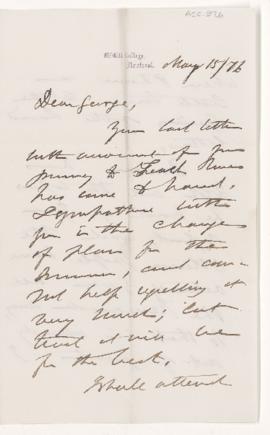 ACC-826
McGill College,
Montreal.
May 15/76
Dear George,
Your last letter
with account of your
journey to
has come to hand.
I sympathise with
you in the change
of plan for the
summer, and can
not help regretting it
very much; but
trust it will be
for the best.
I shall attend